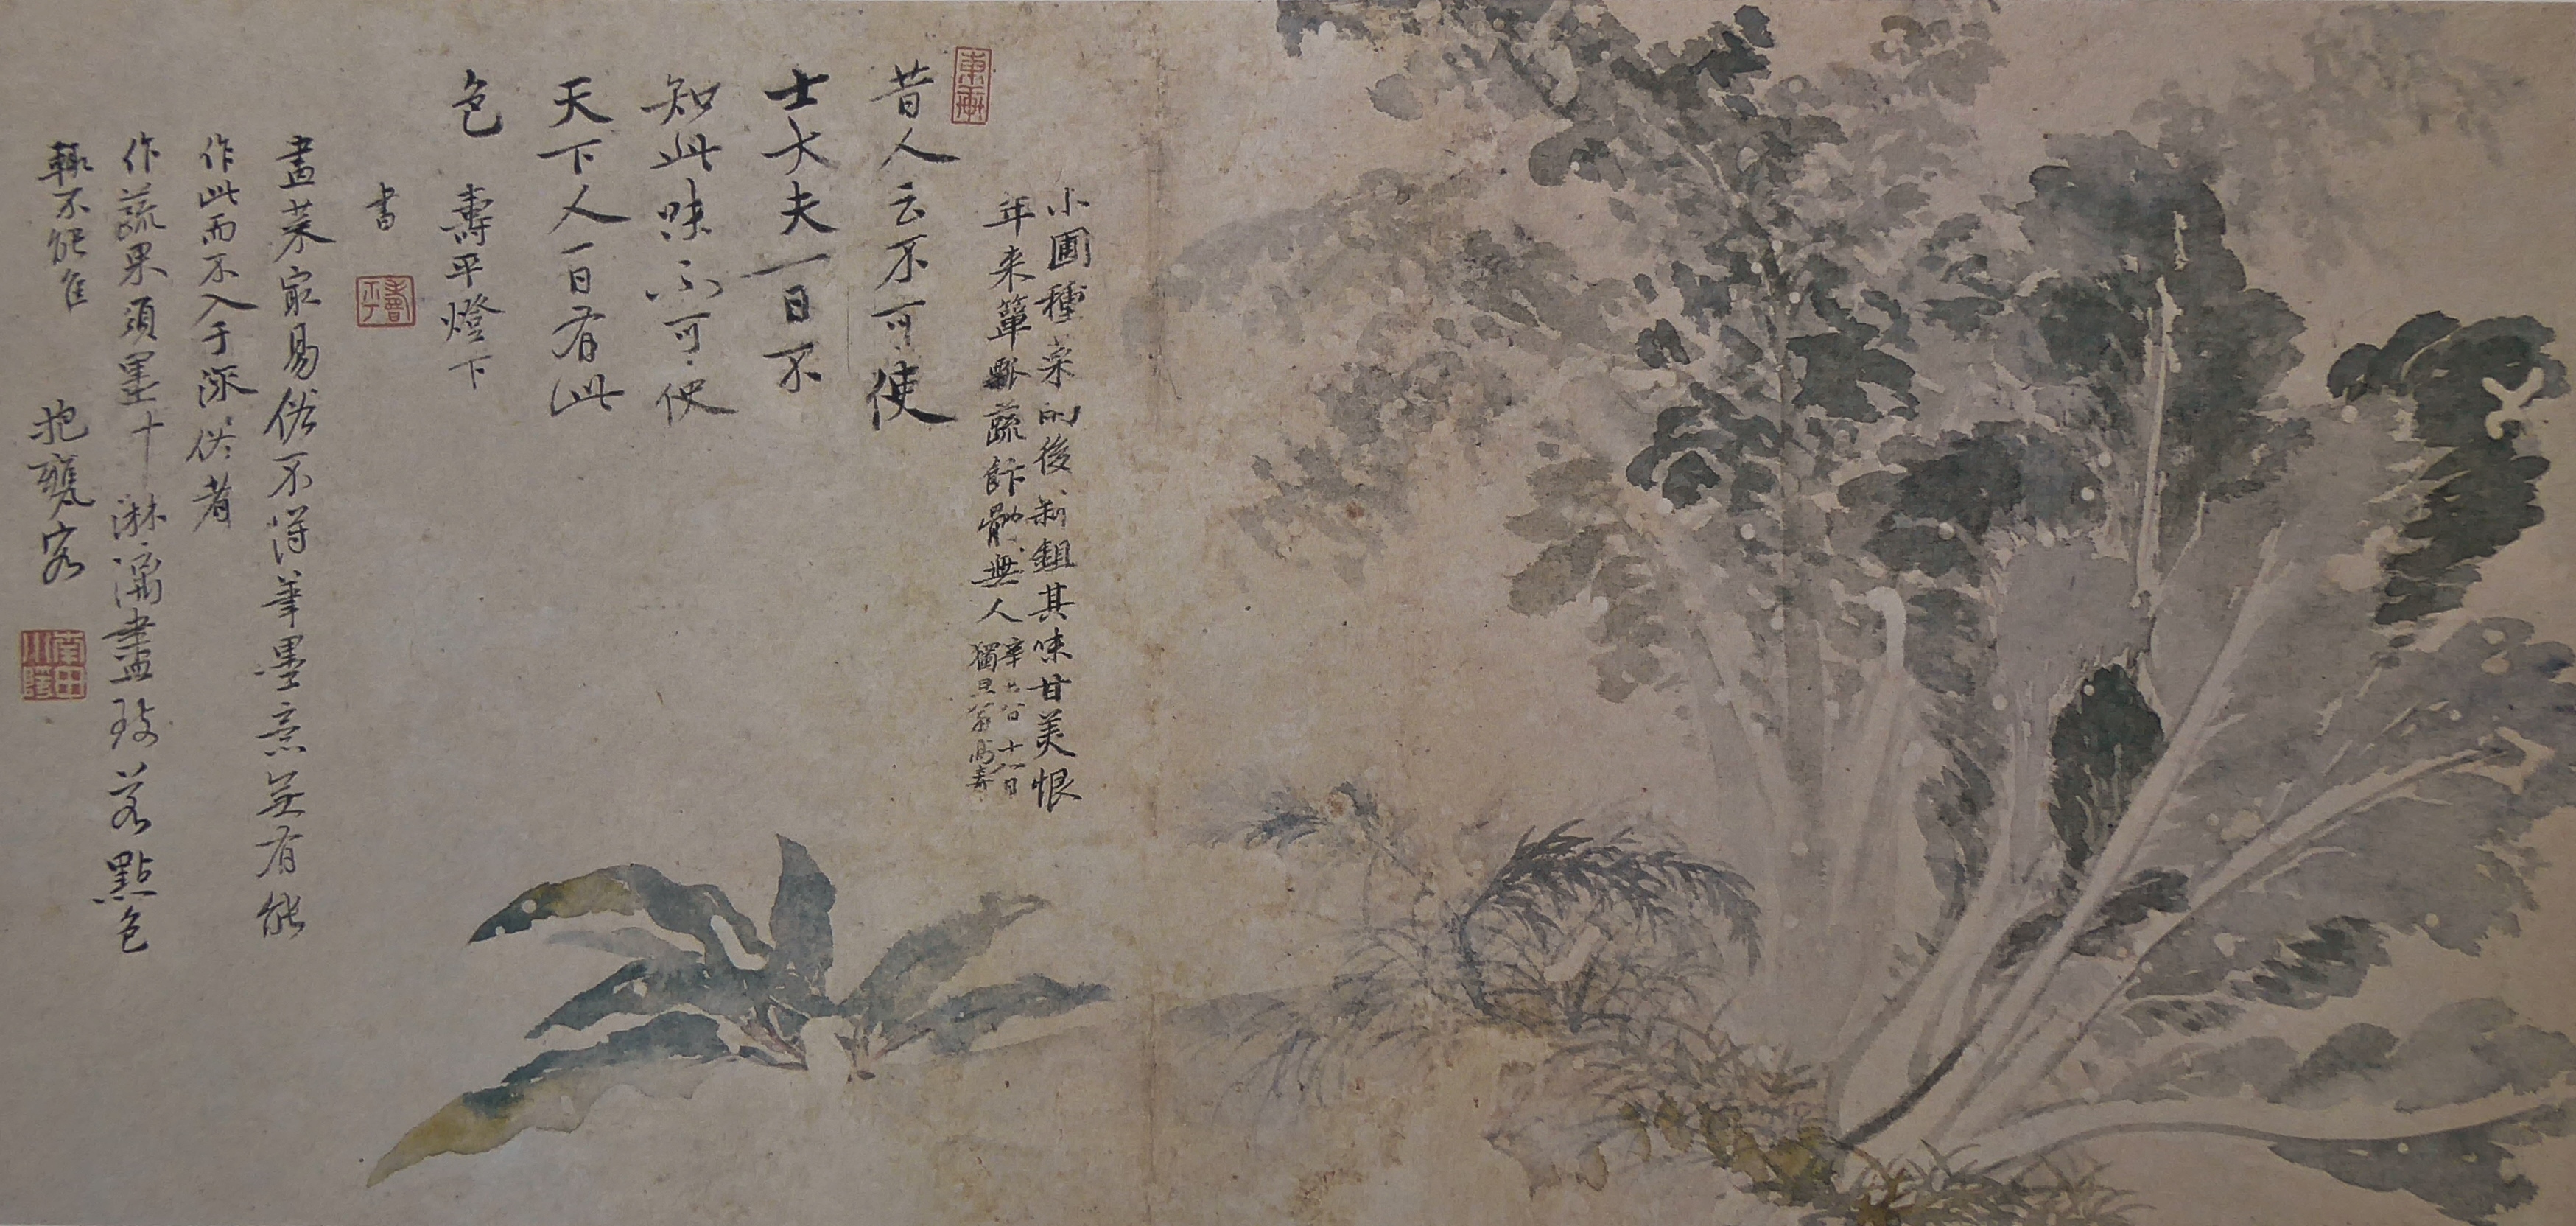 小圃種菜雨後新鉏其味甘美恨
年来簞瓢蔬飰骨無人
十一日
東園
昔人云不可使
士大夫一日不
知此味不可使
天下人一日有此
色 壽平燈下
書
壽平
畫菜家易俗不得筆墨意並有能
作此而不入于流俗者
作蔬果須墨汁淋漓盡致若點色
輒不能佳 抱甕客
南田小隱